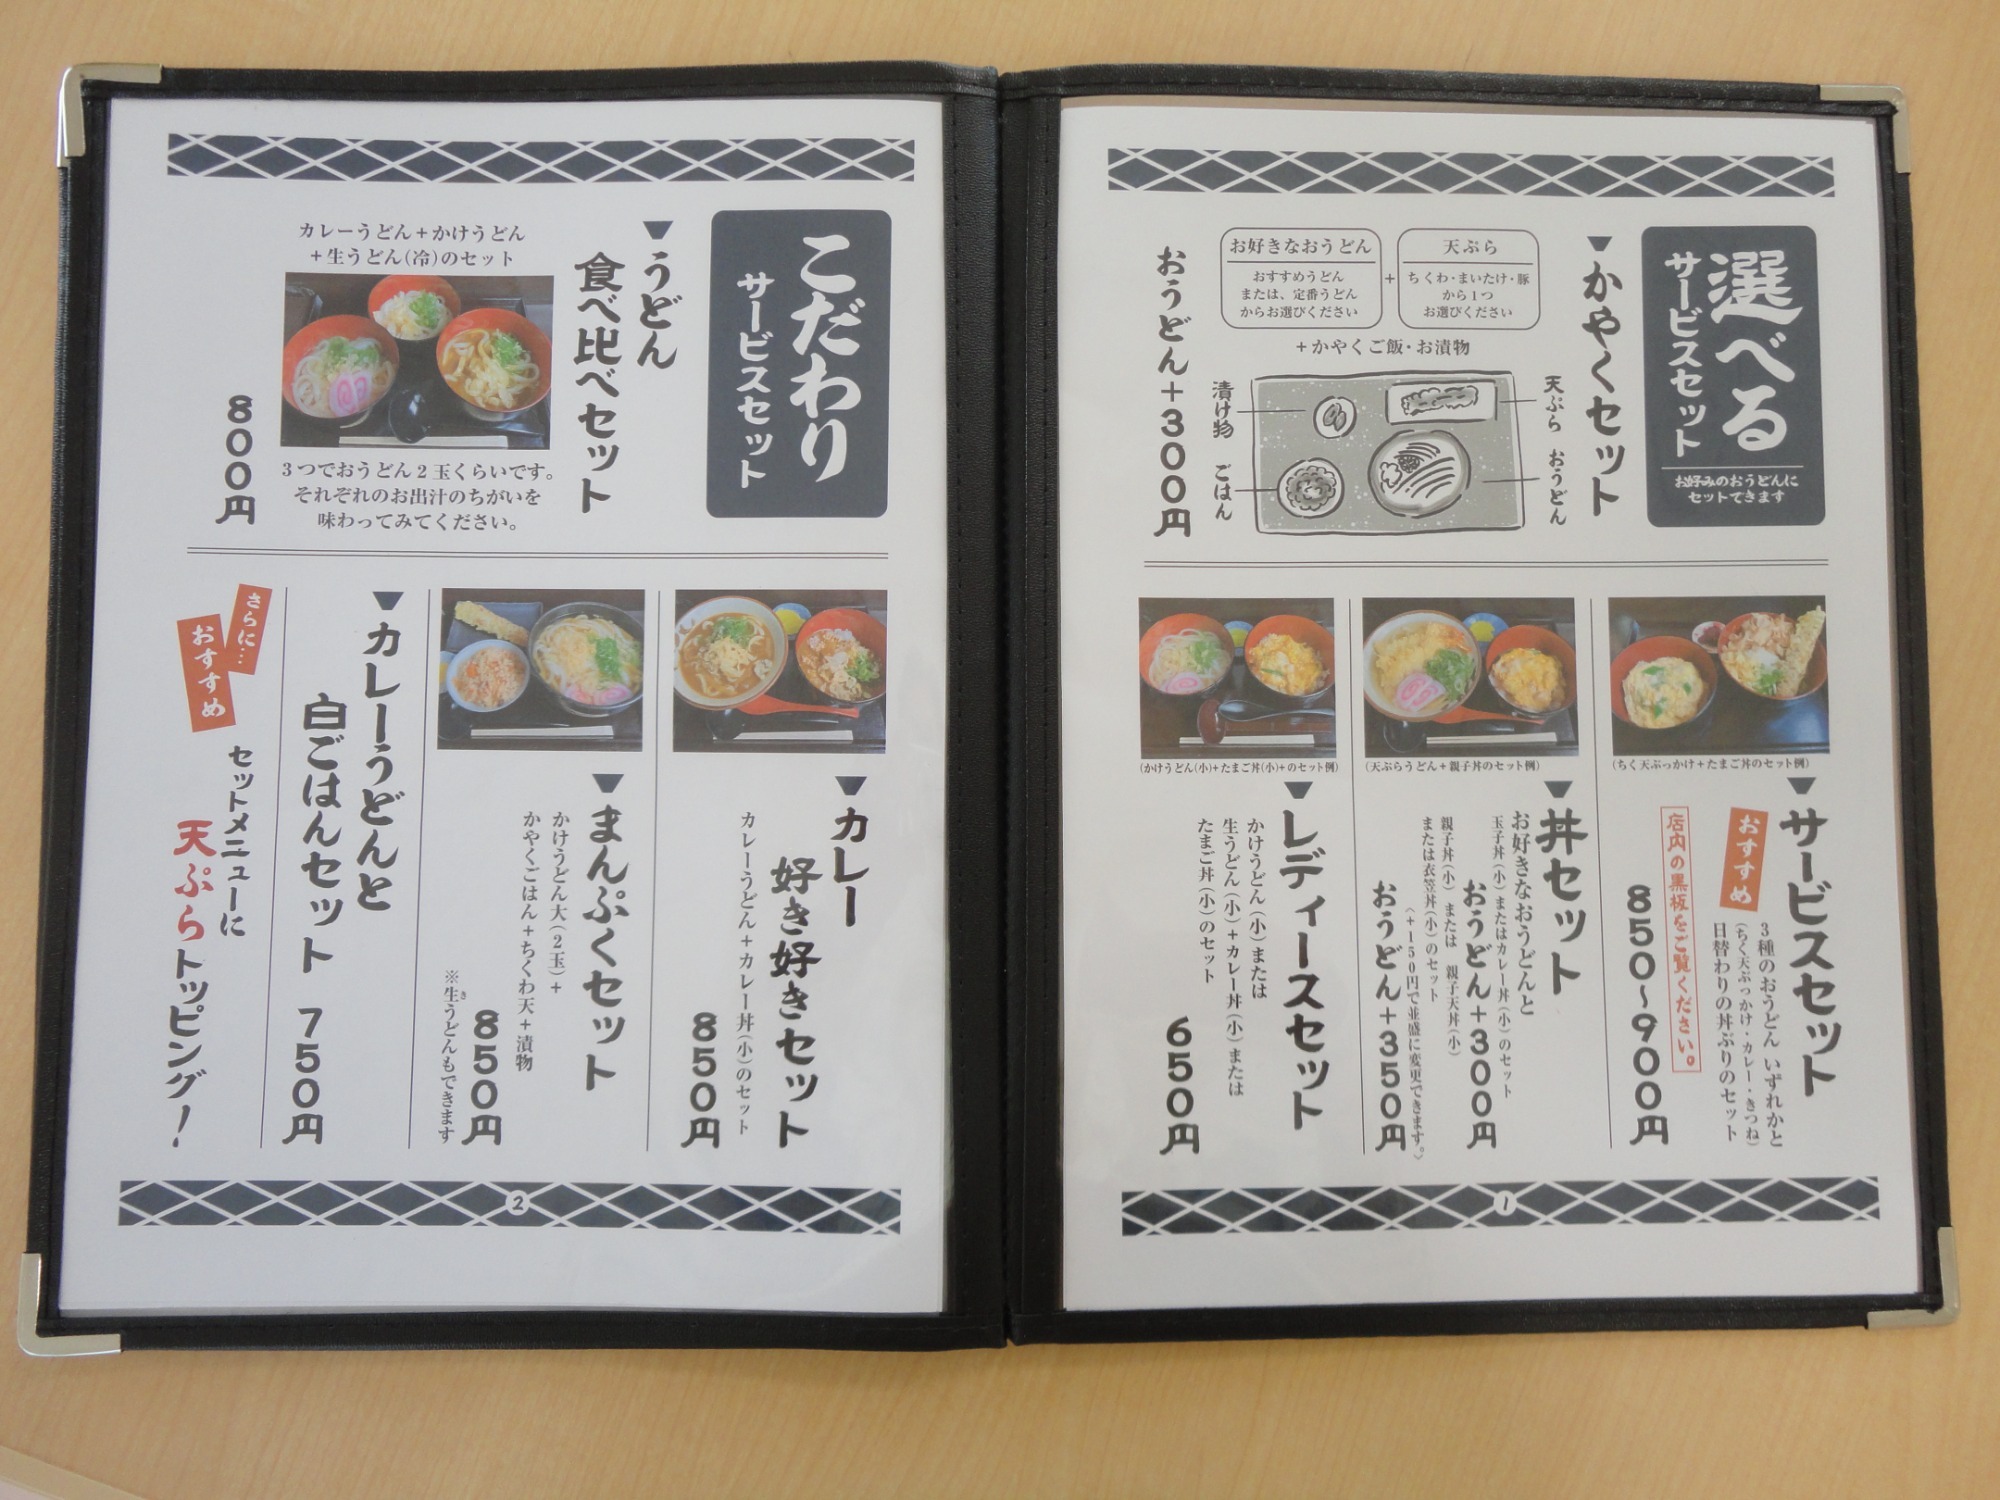 選べる
サービスセット
お好みのおうどんに
セットできます
かやくセット
お好きなおうどん
おすすめうどん
または、定番うどん
からお選びください
+
天ぷら
ちくわ・まいたけ・豚
から1つ
お選びください
+かやくご飯・お漬物
天ぷら
おうどん
漬け物
ごはん
おうどん+300円
(ちく天ぶっかけ+たまご丼のセット例)
サービスセット
おすすめ
3種のおうどん いずれかと
(ちく天ぶっかけ・カレー・きつね)
日替わりの丼ぶりのセット
店内の黒板をご覧ください。
850~900円
(天ぷらうどん+親子丼のセット例)
丼セット
お好きなおうどんと
玉子丼(小)またはカレー丼(小)のセット
おうどん+300円
親子丼(小) または 親子天丼(小)
または衣笠丼(小)のセット
(+150円で並盛に変更できます。)
おうどん+350円
(かけうどん(小)+たまご丼(小)+のセット例)
レディースセット
かけうどん(小)または
生うどん(小)+カレー丼(小)または
たまご丼(小)のセット
650円
1
こだわり
サービスセット
うどん
食べ比べセット
カレーうどん+かけうどん
+生うどん(冷)のセット
3つでおうどん2玉くらいです。
それぞれのお出汁のちがいを
味わってみてください。
800円
カレー
好き好きセット
カレーうどん+カレー丼(小)のセット
850円
まんぷくセット
かけうどん大(2玉)+
かやくごはん+ちくわ天+漬物
850円
※生うどんもできます
き
カレーうどんと
白ごはんセット 750円
さらに…
おすすめ
セットメニューに
天ぷらトッピング!
2